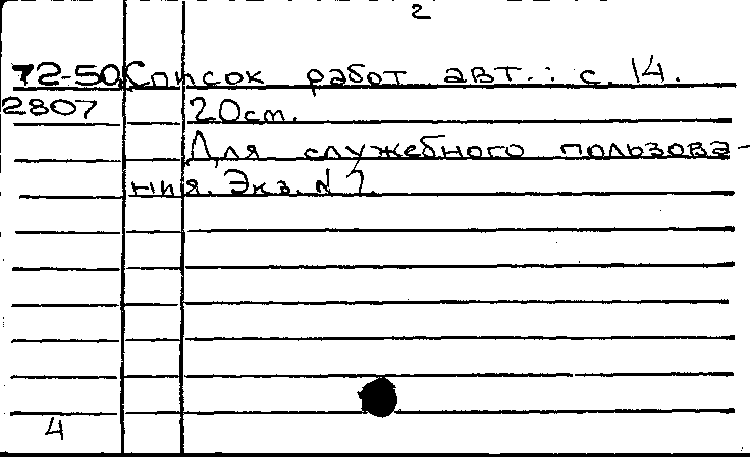 2
72-50 Список работ авт.: с. 14.
2807 20см.
Для служебного пользова-
ния. Экз. N 7.
4